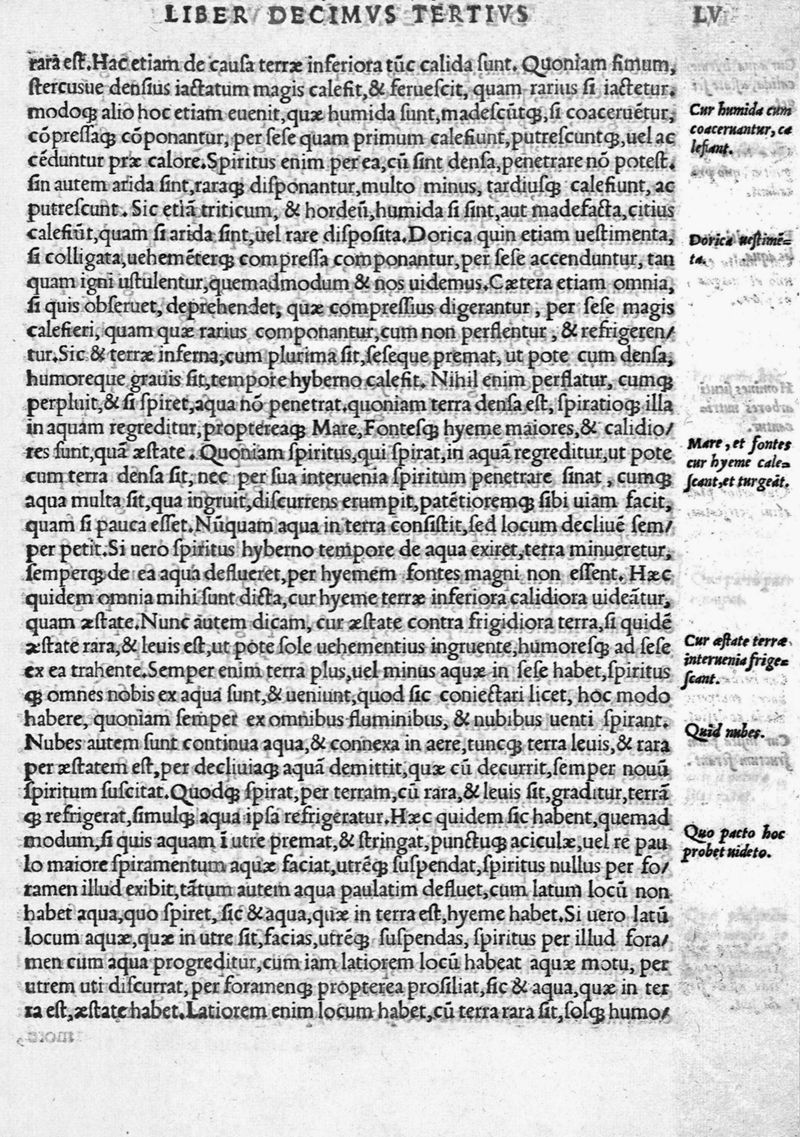 LIBER DECIMVS TERTIVS LV
rara est. Hac etiam de causa terræ inferiora tūc calida sunt. Quoniam fimum,
stercusue densius iactatum magis calefit, & feruescit, quam rarius si iactetur.
modoq; alio hoc etiam euenit, quæ humida sunt, madescūtq;, si coaceruētur,
cōpressaq; cōponantur, per sese quam primum calefiunt, putrescuntq;, uel ac
cēduntur præ calore. Spiritus enim per ea, cū sint densa, penetrare nō potest.
sin autem arida sint, raraq; disponantur, multo minus, tardiusq; calefiunt, ac
putrescunt. Sic etiā triticum, & hordeū, humida si sint, aut madefacta, citius
calefiūt, quam si arida sint, uel rare disposita. Dorica quin etiam uestimenta,
si colligata, uehemēterq; compressa componantur, per sese accenduntur, tan
quam igni ustulentur, quemadmodum & nos uidemus. Cætera etiam omnia,
si quis obseruet, deprehendet, quæ compressius digerantur, per sese magis
calefieri, quam quæ rarius componantur, cum non perflentur, & refrigeren/
tur. Sic & terræ inferna, cum plurima sit, seseque premat, ut pote cum densa,
humoreque grauis sit, tempore hyberno calefit. Nihil enim perflatur, cumq;
perpluit, & si spiret, aqua nō penetrat. quoniam terra densa est, spiratioq; illa
in aquam regreditur, proptereaq; Mare, Fontesq; hyeme maiores, & calidio/
res sunt, quā æstate. Quoniam spiritus, qui spirat, in aquā regreditur, ut pote
cum terra densa sit, nec per sua interuenia spiritum penetrare sinat, cumq;
aqua multa sit, qua ingruit, discurrens erumpit, patētioremq; sibi uiam facit,
quam si pauca esset. Nūquam aqua in terra consistit, sed locum decliuē sem/
per petit. Si uero spiritus hyberno tempore de aqua exiret, terra minueretur,
semperq; de ea aqua deflueret, per hyemem fontes magni non essent. Hæc
quidem omnia mihi sunt dicta, cur hyeme terræ inferiora calidiora uideātur,
quam æstate. Nunc autem dicam, cur æstate contra frigidiora terra, si quidē
æstate rara, & leuis est, ut pote sole uehementius ingruente, humoresq; ad sese
ex ea trahente. Semper enim terra plus, uel minus aquæ in sese habet, spiritus
q; omnes nobis ex aqua sunt, & ueniunt, quod sic coniectari licet, hoc modo
habere, quoniam semper ex omnibus fluminibus, & nubibus uenti spirant.
Nubes autem sunt continua aqua, & connexa in aere, tuncq; terra leuis, & rara
per æstatem est, per decliuiaq; aquā demittit, quæ cū decurrit, semper nouū
spiritum suscitat. Quodq; spirat, per terram, cū rara, & leuis sit, graditur, terrā
q; refrigerat, simulq; aqua ipsa refrigeratur. Hæc quidem sic habent, quemad
modum, si quis aquam ī utre premat, & stringat, punctuq; aciculæ, uel re pau
lo maiore spiramentum aquæ faciat, utrēq; suspendat, spiritus nullus per fo/
ramen illud exibit, tātum autem aqua paulatim defluet, cum latum locū non
habet aqua, quo spiret, sic & aqua, quæ in terra est, hyeme habet. Si uero latū
locum aquæ, quæ in utre sit, facias, utrēq; suspendas, spiritus per illud fora/
men cum aqua progreditur, cum iam latiorem locū habeat aquæ motu, per
utrem uti discurrat, per foramenq; propterea prosiliat, sic & aqua, quæ in ter
ra est, æstate habet. Latiorem enim locum habet, cū terra rara sit, solq; humo/
Cur humida cum
coaceruantur, ca
lefiant.
Dorica uestimē=
ta.
Mare, et fontes
cur hyeme cale=
scant, et turgeāt.
Cur æstate terræ
interuenia frige=
scant.
Quid nubes.
Quo pacto hoc
probet uideto.